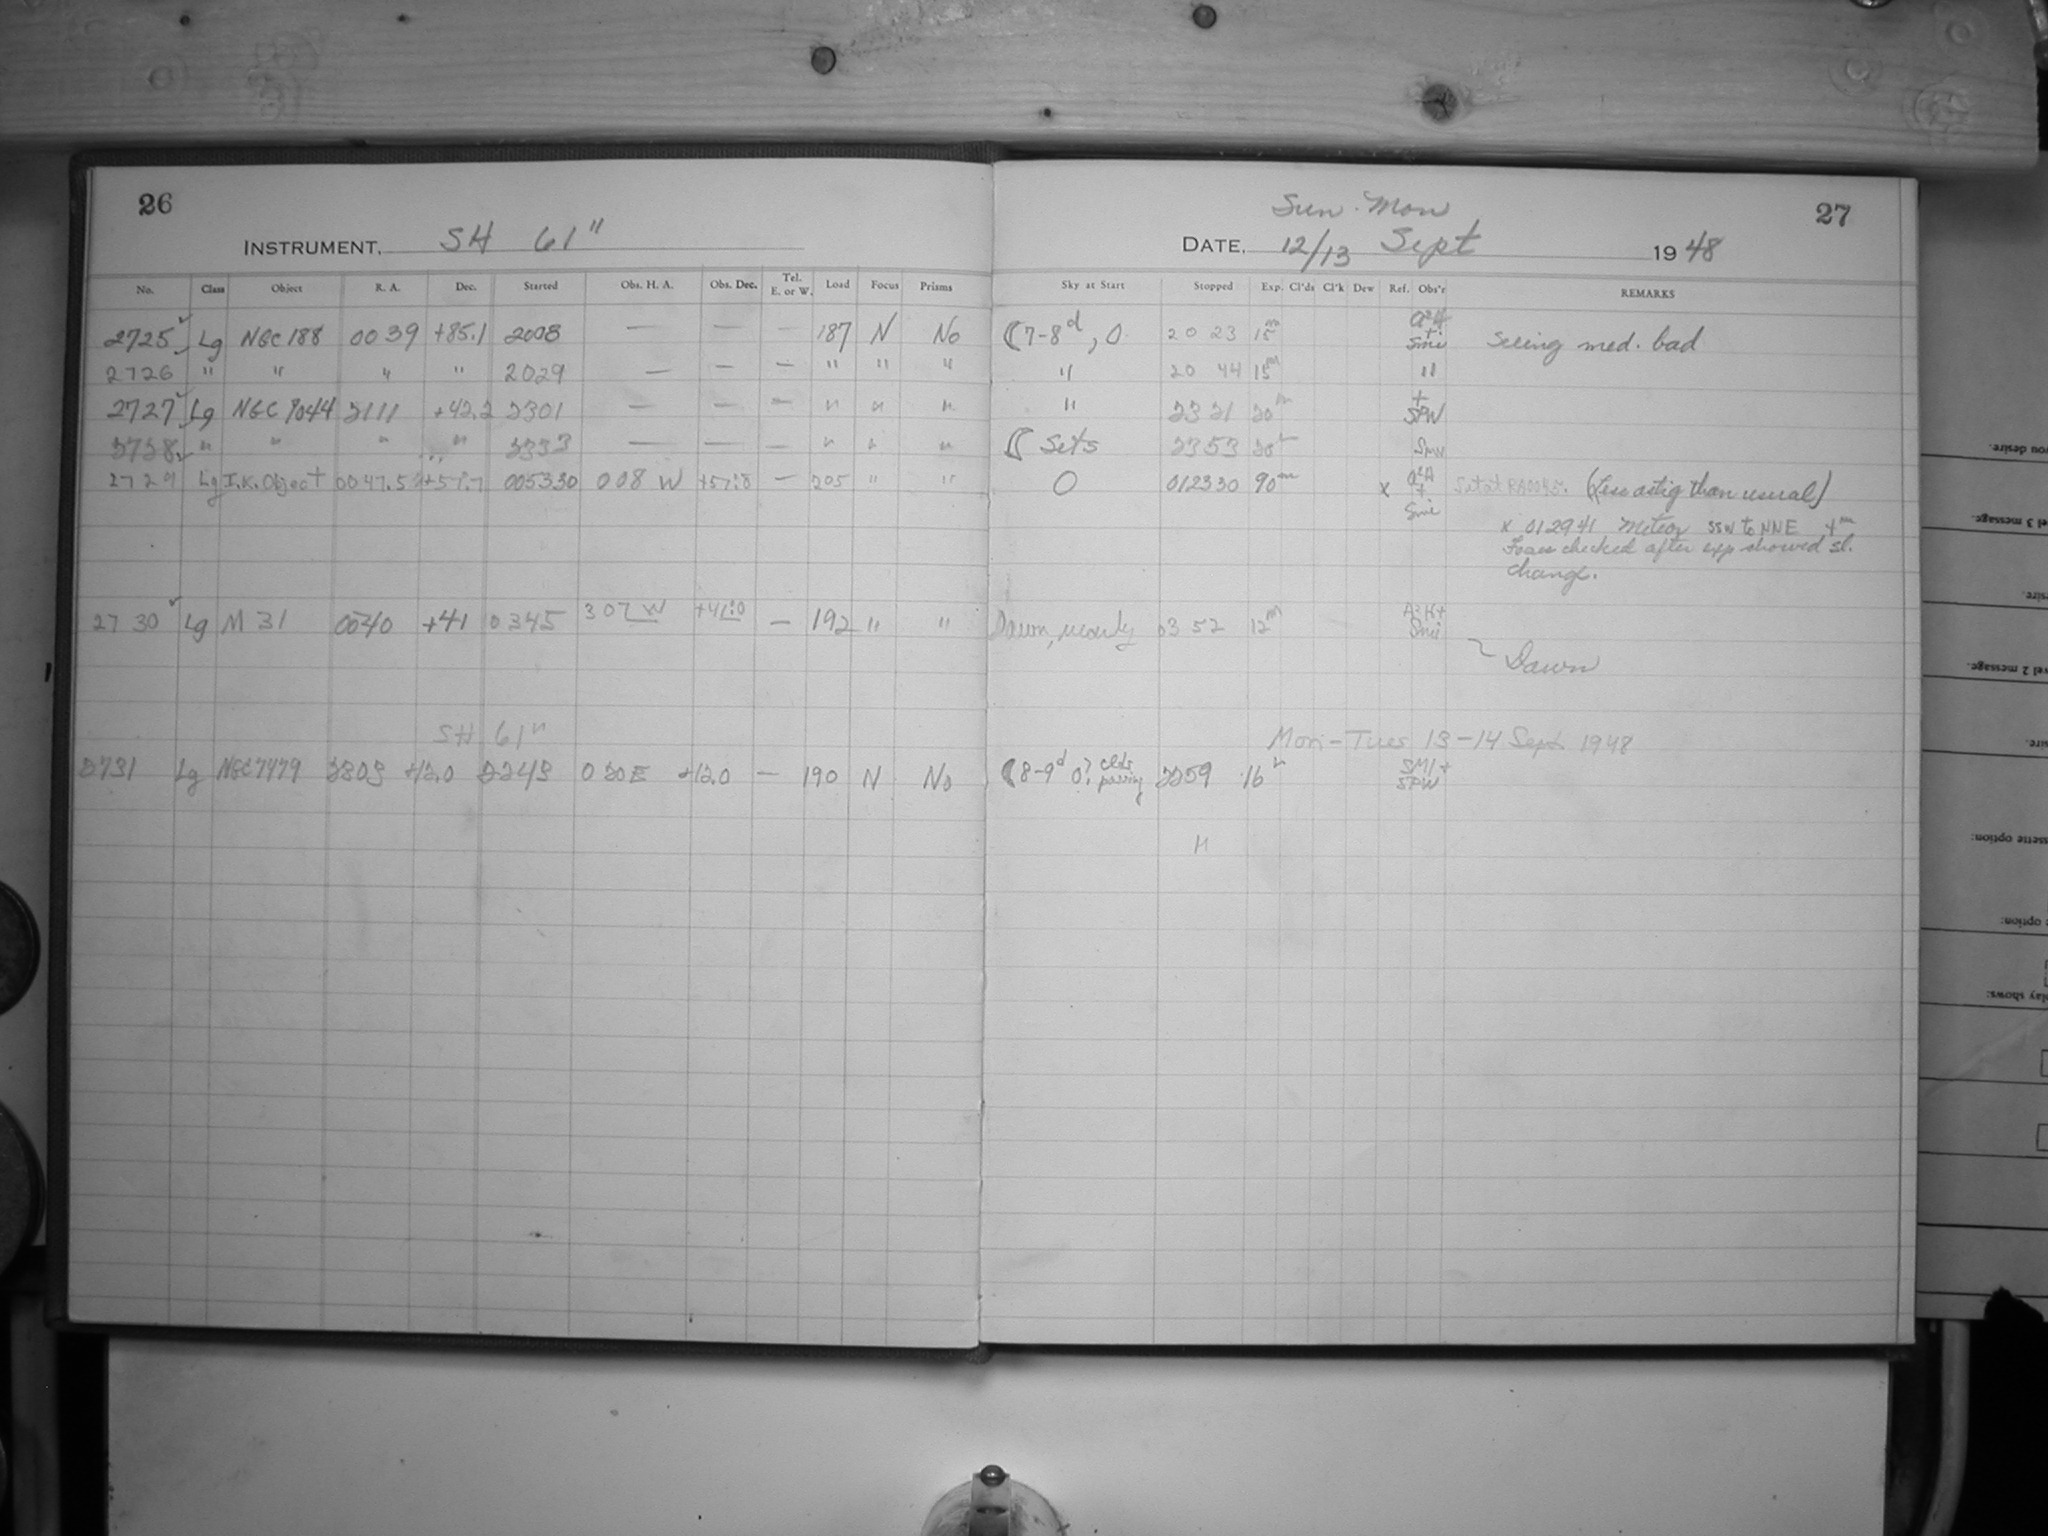 26
INSTRUMENT, SH 61"
No. Class Object R. A. Dec. Started Obs. H. A. Obs. Dec. Tel. E. or W. Load Focus Prisms
2725 Lg NGC 188 00 39 +85.1 2008 — — — 187 N No
2726 " " " " 2029 — — — " " "
2727 Lg NGC 7044 2111 +42.2 2301 — — — " " "
2728 " " " " 2333 — — — " " "
2729 Lg I.K. Object 0047.5 +57.7 005330 008 W +57:8 — 205 " "
2730 Lg M 31 0040 +41 0345 307 W +41:0 — 192 " "
SH 61"
2731 Lg NGC 7479 2303 +12.0 2243 0 20 E +12.0 — 190 N No
Sun-Mon
27
DATE, 12/13 Sept 1948
Sky at Start Stopped Exp. Cl'ds Cl'k Dew Ref. Obs'r REMARKS
(7-8d, 0 20 23 15m + Smi Seeing med. bad
" 20 44 15m "
" 23 21 20m + SPW
( Sets 2353 20m
0 012330 90m x + Smi (Less astig than usual)
x 012941 Meteor SSW to NNE
Focus checked after exp showed sl.
change.
Dawn, nearly 03 52 12m Smi
Dawn
Mon-Tues 13-14 Sept 1948
(8-9d 0, clds passing 2259 16m SMI + SPW
H
you desire.
3 message.
2 message.
option:
option:
play shows: